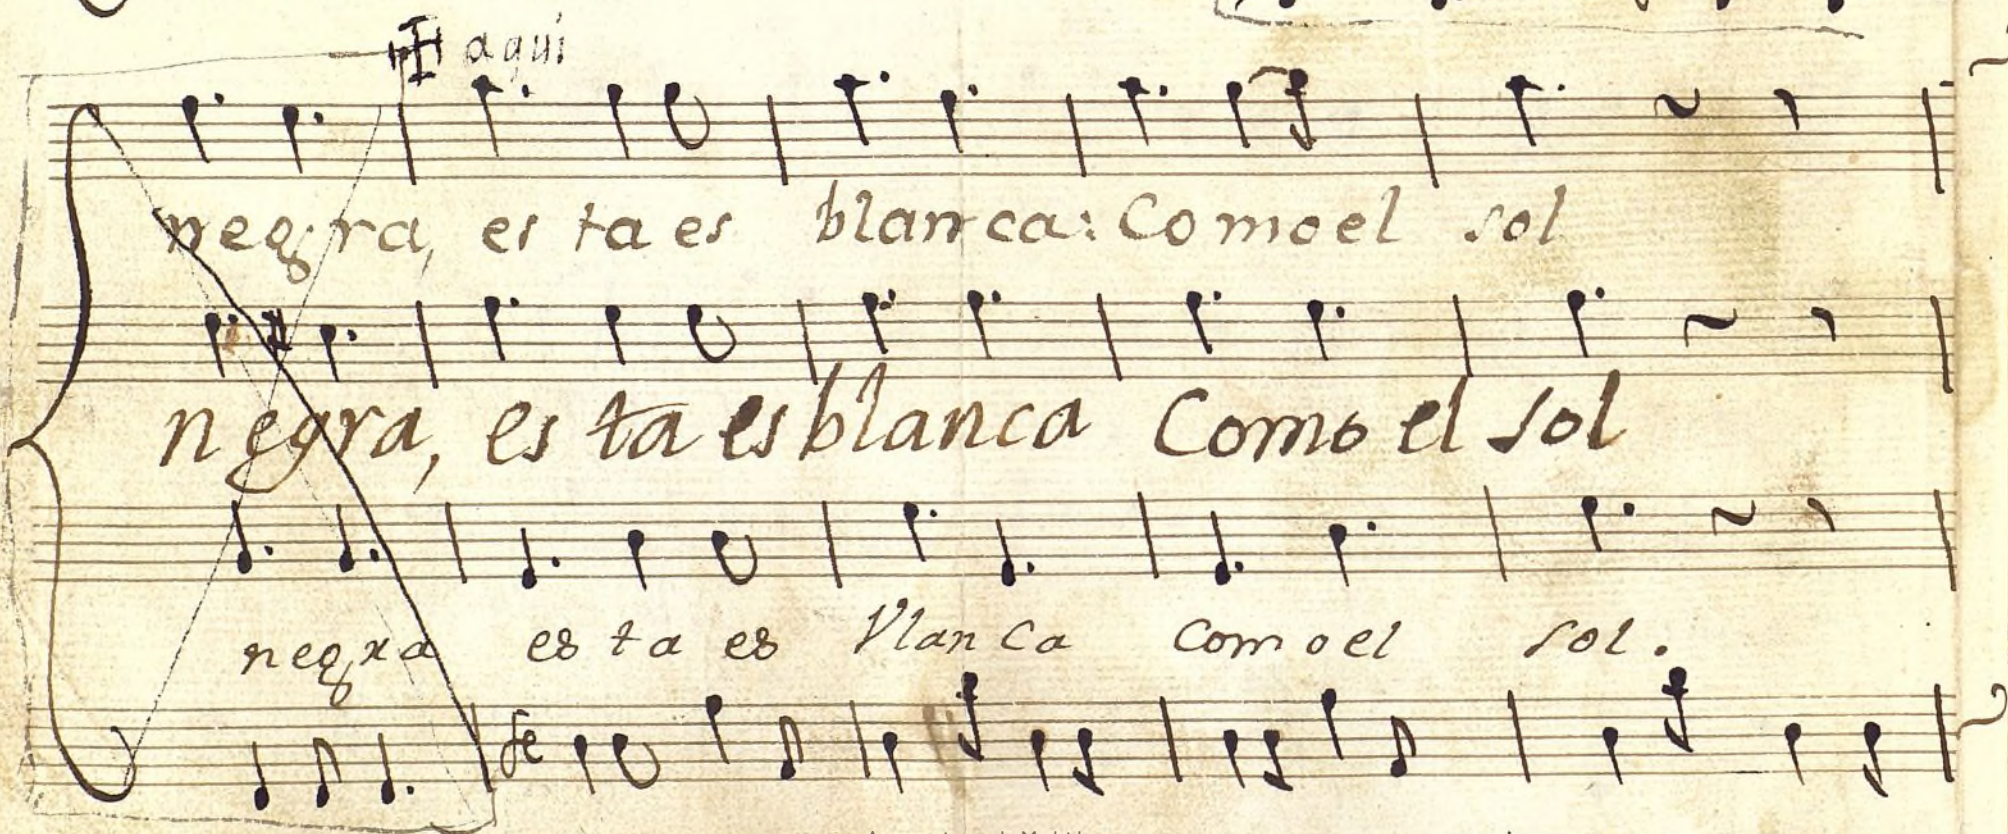 aqui
negra, es ta es blanca: Como el sol
negra, es ta es blanca Como el sol
negra es ta es Vlanca como el sol.